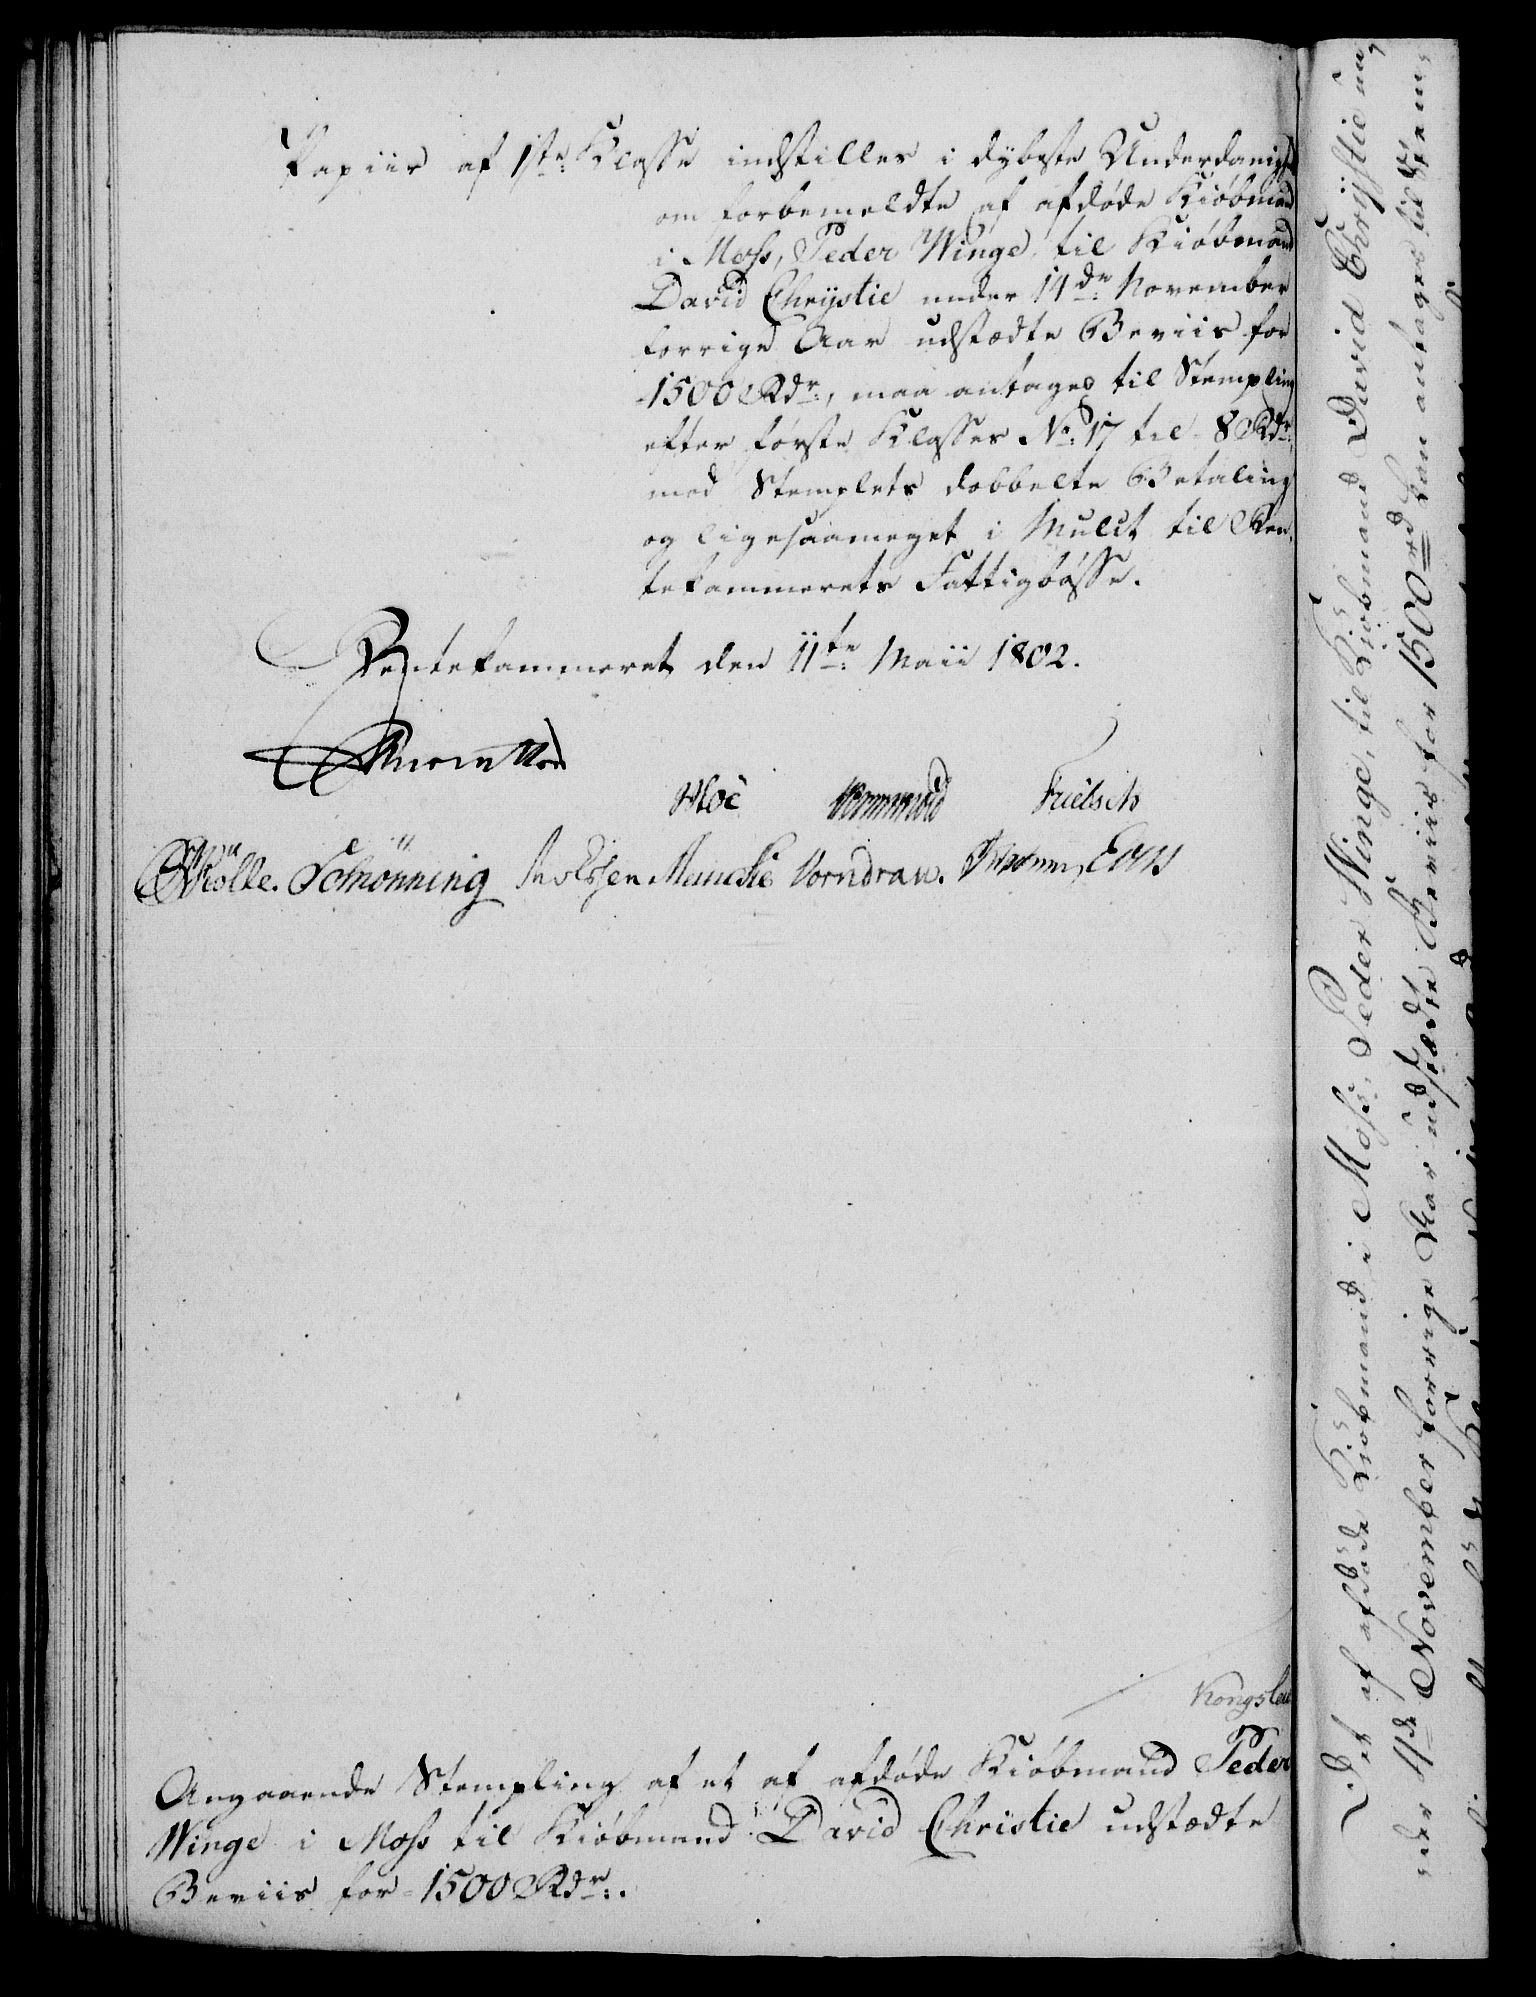 Papiir af 1ste Klasse indstilles i dybeste Underdanigst
om forbemeldte af afdøde Kiöbmand
i Moss, Peder Winge, til Kiöbmand
David Chrystie under 14de November
forrige Aar udstædte Beviis for
1500 Rdr., maa antages til Stempling
efter første Klasses No. 17 til 8 Rdr.
med Stemplets dobbelte Betaling
og ligesaameget i Mulct til Ren-
tekammerets Fattigbösse.
Rentekammeret den 11te Maii 1802.
Hoë Wormskiold Frielsch
Kölle. Schönning Meincke Vorndran.
Kongslew
Angaaende Stempling af et af afdøde Kiöbmand Peder
Winge i Moss til Kiöbmand David Christie udstædte
Beviis for 1500 Rdr.
Det af afdøde Kiöbmand i Moss, Peder Winge, til Kiöbmand David Chrÿstie un,
der 14de November forrige Aar udstædte Beviis for 1500 rd kan antages til Stem,